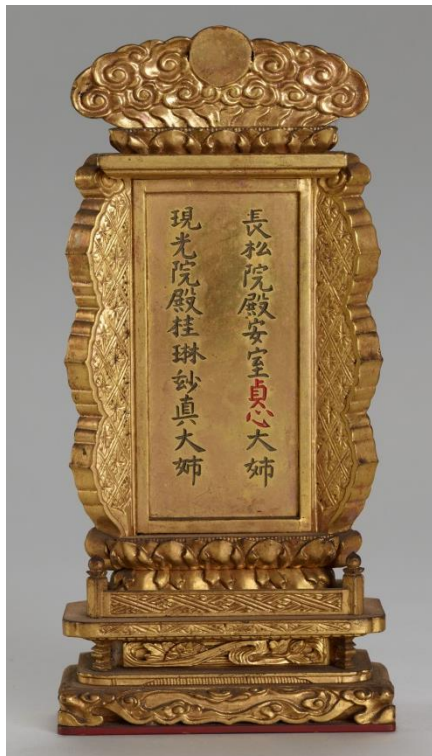 長松院殿安室貞心大姉
現光院殿桂琳玅真大姉